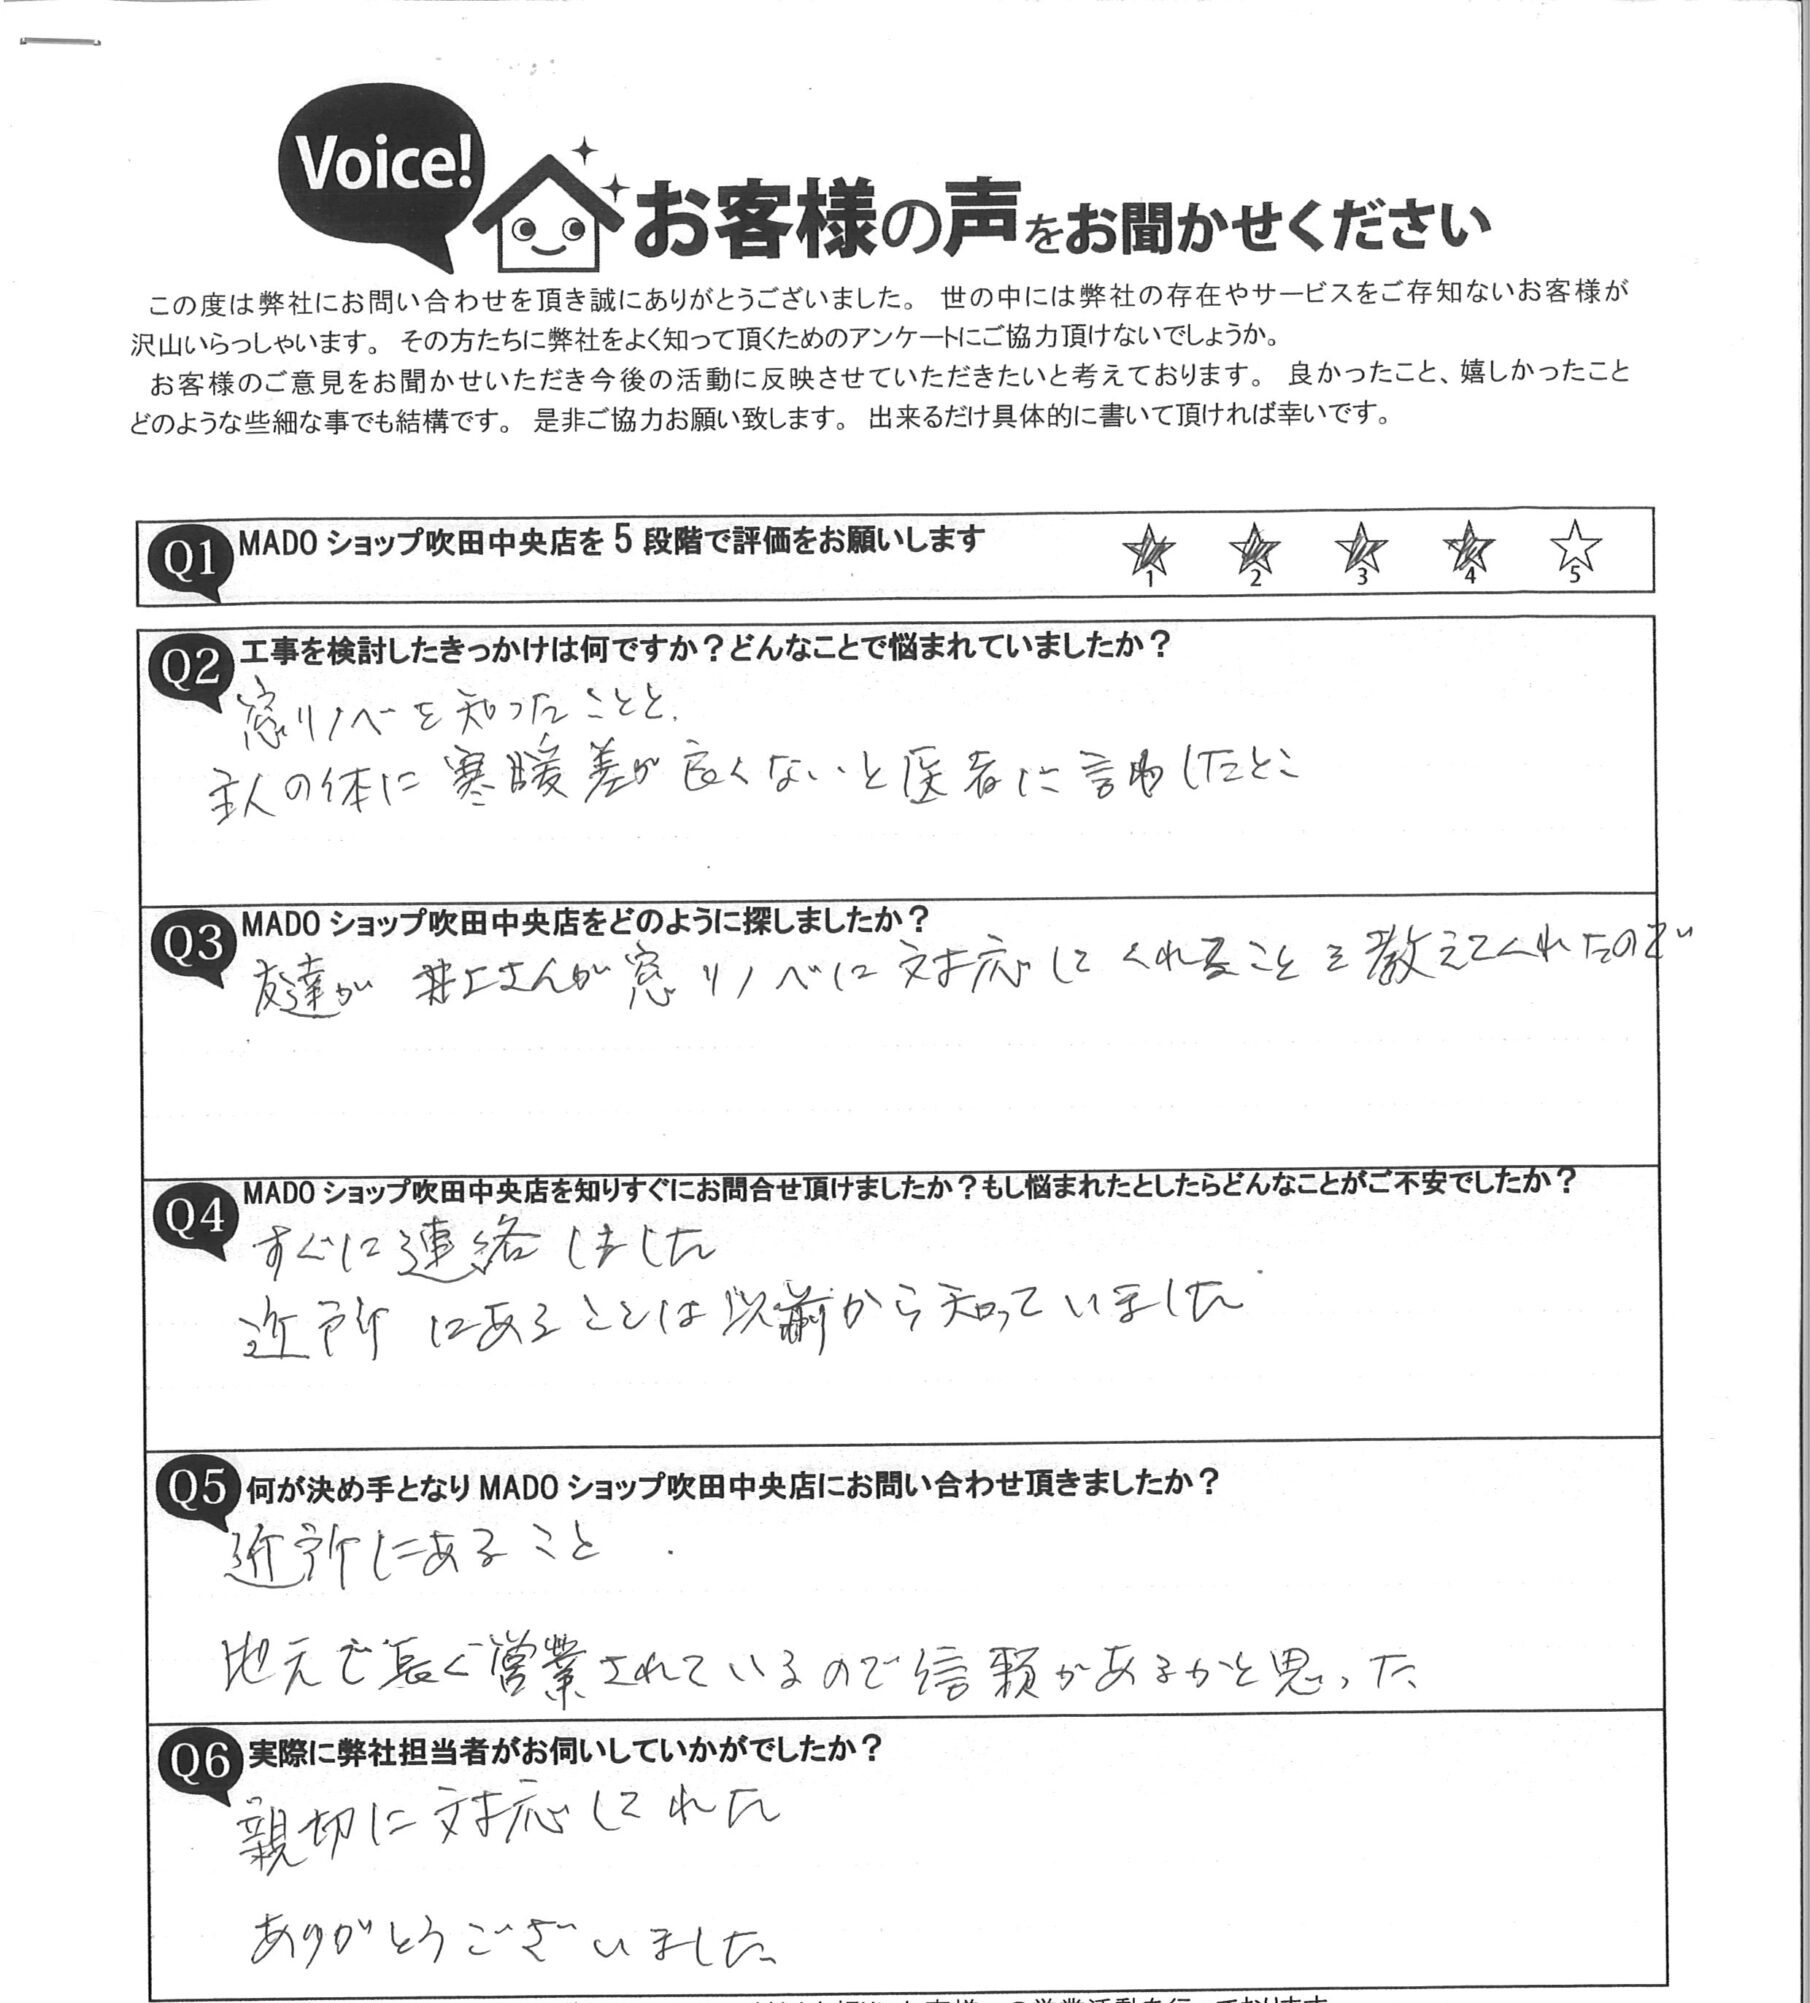 Voice!
お客様の声をお聞かせください
この度は弊社にお問い合わせを頂き誠にありがとうございました。 世の中には弊社の存在やサービスをご存知ないお客様が
沢山いらっしゃいます。 その方たちに弊社をよく知って頂くためのアンケートにご協力頂けないでしょうか。
お客様のご意見をお聞かせいただき今後の活動に反映させていただきたいと考えております。 良かったこと、嬉しかったこと
どのような些細な事でも結構です。 是非ご協力お願い致します。 出来るだけ具体的に書いて頂ければ幸いです。
Q1 MADO ショップ吹田中央店を 5 段階で評価をお願いします
1 2 3 4 5
Q2 工事を検討したきっかけは何ですか？どんなことで悩まれていましたか？
窓リノベを知ったことと、
主人の体に寒暖差が良くないと医者に言われたとこ
Q3 MADO ショップ吹田中央店をどのように探しましたか？
友達が 井上さんが窓リノベに対応してくれることを教えてくれたので
Q4 MADO ショップ吹田中央店を知りすぐにお問合せ頂けましたか？もし悩まれたとしたらどんなことがご不安でしたか？
すぐに連絡しました
近所にあることは以前から知っていました
Q5 何が決め手となり MADO ショップ吹田中央店にお問い合わせ頂きましたか？
近所にあること
地元で長く営業されているので信頼があるかと思った、
Q6 実際に弊社担当者がお伺いしていかがでしたか？
親切に対応してれた
ありがとうございました、